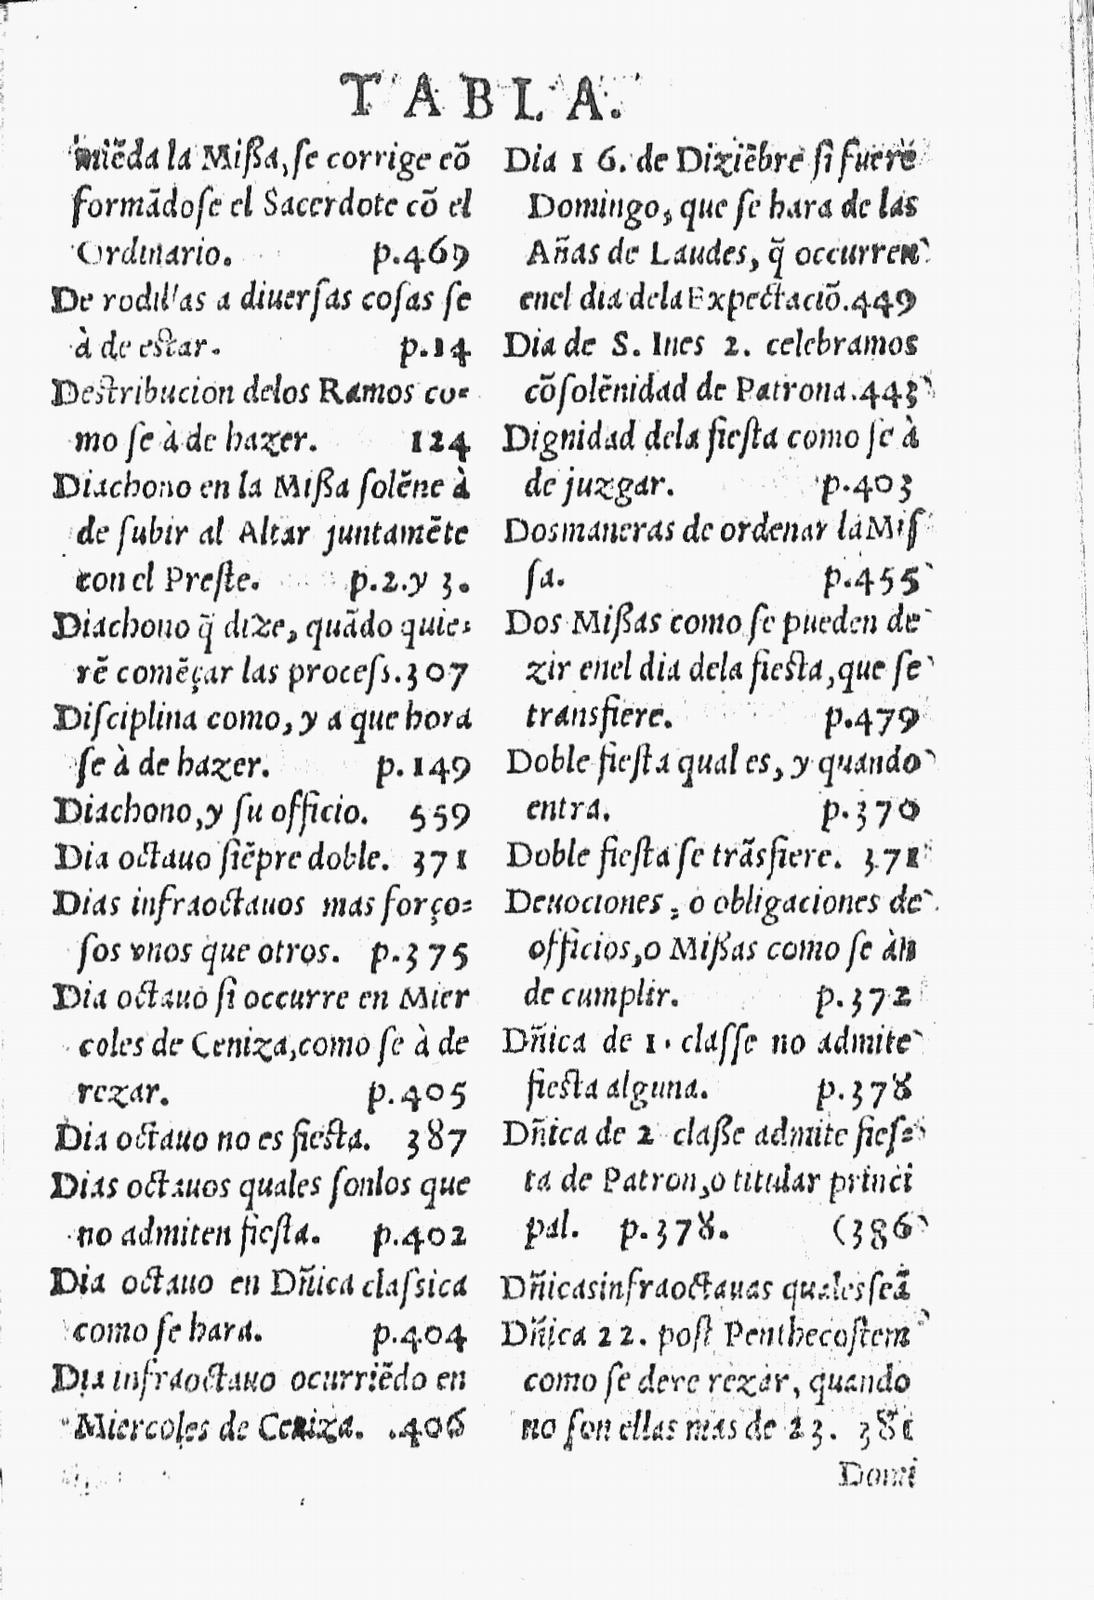 TABLA.
miẽda la Mißa, ſe corrige cõ
formãdoſe el Sacerdote cõ el
Ordinario. p.469
De rodillas a diuerſas coſas ſe
à de eſtar. p.14
Deſtribucion delos Ramos co-
mo ſe à de hazer. 124
Diachono en la Mißa ſolẽne à
de ſubir al Altar juntamẽte
con el Preſte. p.2.y 3.
Diachono q̃ dize, quãdo quie-
rẽ comẽçar las proceſs.307
Diſciplina como, y a que hora
ſe à de hazer. p.149
Diachono, y ſu officio. 559
Dia octauo ſiẽpre doble. 371
Dias infraoctauos mas forço-
ſos vnos que otros. p.375
Dia octauo ſi occurre en Mier
coles de Ceniza,como ſe à de
rezar. p.405
Dia octauo no es fieſta. 387
Dias octauos quales ſonlos que
no admiten fieſta. p.402
Dia octauo en Dñica claſsica
como ſe hara. p.404
Dia infraoctauo ocurriẽdo en
Miercoles de Ceniza. .406
Dia 16. de Diziẽbre ſi fuere
Domingo, que ſe hara de las
Añas de Laudes, q̃ occurren
enel dia dela Expectaciõ.449
Dia de S. Ines 2. celebramos
cõſolẽnidad de Patrona.443
Dignidad dela fieſta como ſe à
de juzgar. p.403
Dosmaneras de ordenar laMiſ
ſa. p.455
Dos Mißas como ſe pueden de
zir enel dia dela fieſta,que ſe
transfiere. p.479
Doble fieſta qual es, y quando
entra. p.370
Doble fieſta ſe trãsfiere. 371
Deuociones, o obligaciones de
officios,o Mißas como ſe àn
de cumplir. p.372
Dñica de 1. claſſe no admite
fieſta alguna. p.378
Dñica de 2 claße admite fieſ-
ta de Patron,o titular princi
pal. p.378. (386
Dñicasinfraoctauas qualesſeã
Dñica 22. poſt Penthecoſtem
como ſe deve rezar, quando
no ſon ellas mas de 23. 381
Domi